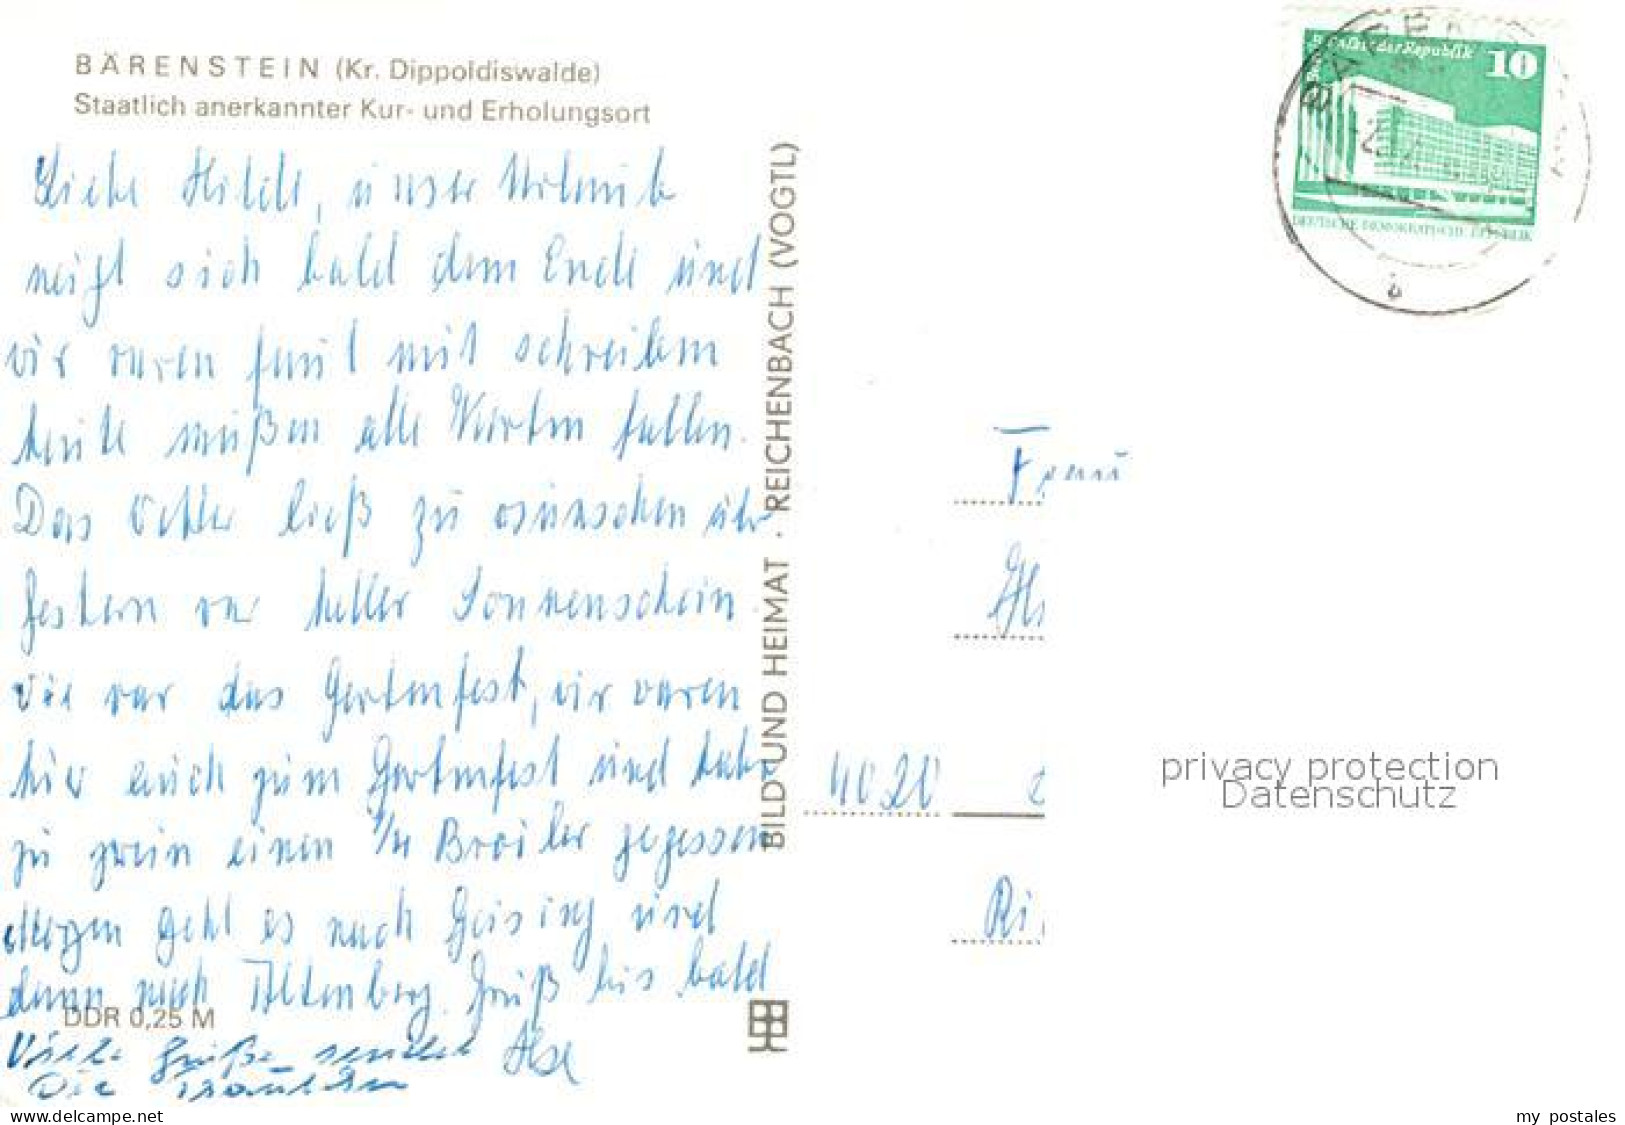 BÄRENSTEIN (Kr. Dippoldiswalde)
Staatlich anerkannter Kur- und Erholungsort
Liebe Hilde, unser Urlaub
neigt sich bald dem Ende und
wir waren faul mit schreiben
heute müßen alle Karten fallen.
Das Wetter ließ zu wünschen übr
gestern war heller Sonnenschein
Wie war das Gartenfest, wir waren
hier auch zum Gartenfest und habe
zu zwein einen 1/4 Broiler gegessen
Morgen geht es nach Geising und
dann nach Altenberg. Gruß bis bald
DDR 0,25 M
Viele Grüße sendet Ilse
Die
BILD UND HEIMAT · REICHENBACH (VOGTL)
10
Palast der Republik
DEUTSCHE DEMOKRATISCHE REPUBLIK
b
Frau
4020
Ri
privacy protection
Datenschutz
www.delcampe.net
my_postales